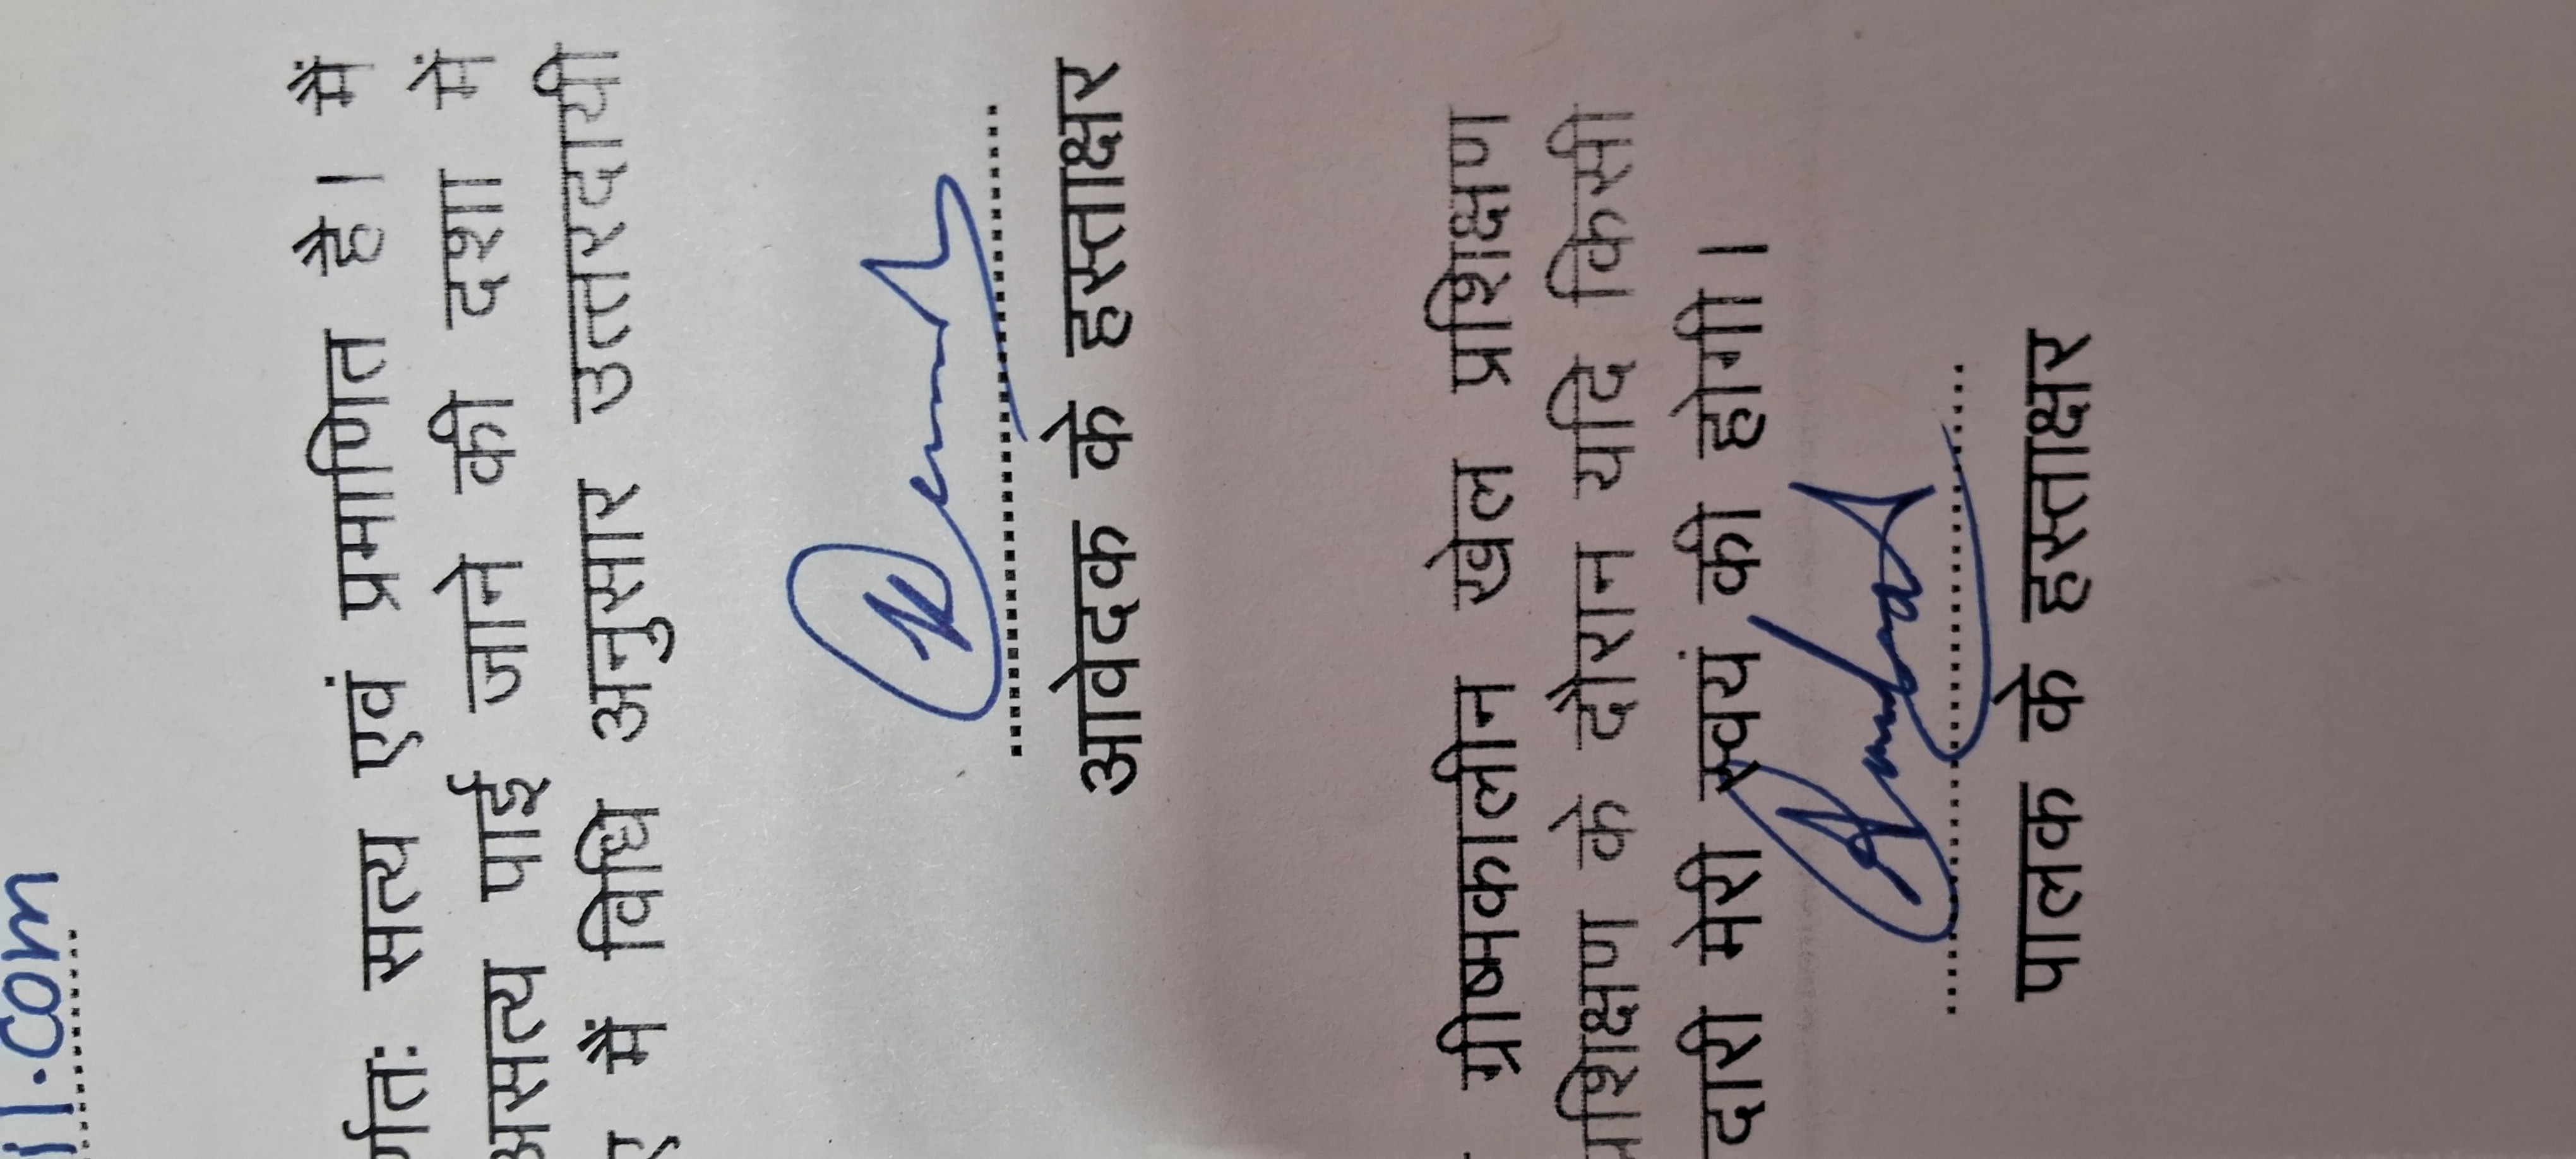 il.com
र्णतः सत्य एवं प्रमाणित है। मैं
असत्य पाई जाने की दशा में
में विधि अनुसार उत्तरदायी
आवेदक के हस्ताक्षर
ग्रीष्मकालीन खेल प्रशिक्षण
प्रशिक्षण के दौरान यदि किसी
दारी मेरी स्वयं की होगी।
पालक के हस्ताक्षर